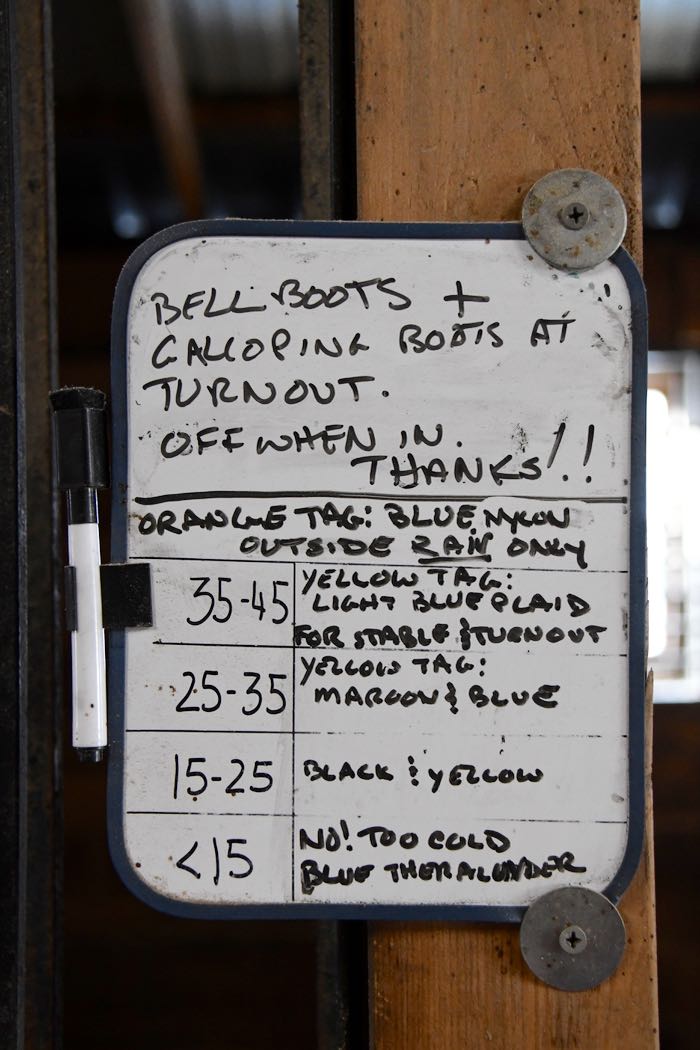 BELL BOOTS +
GALLOPING BOOTS AT
TURNOUT.
OFF WHEN IN.
THANKS!!
ORANGE TAG: BLUE NYLON
OUTSIDE RAIN ONLY
35-45
YELLOW TAG:
LIGHT BLUE PLAID
FOR STABLE & TURNOUT
25-35
YELLOW TAG:
MAROON & BLUE
15-25
BLACK & YELLOW
<15
NO! TOO COLD
BLUE